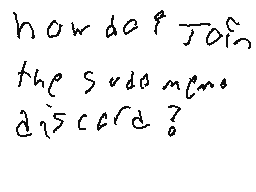 how do i Join
the sudomemo
discord?